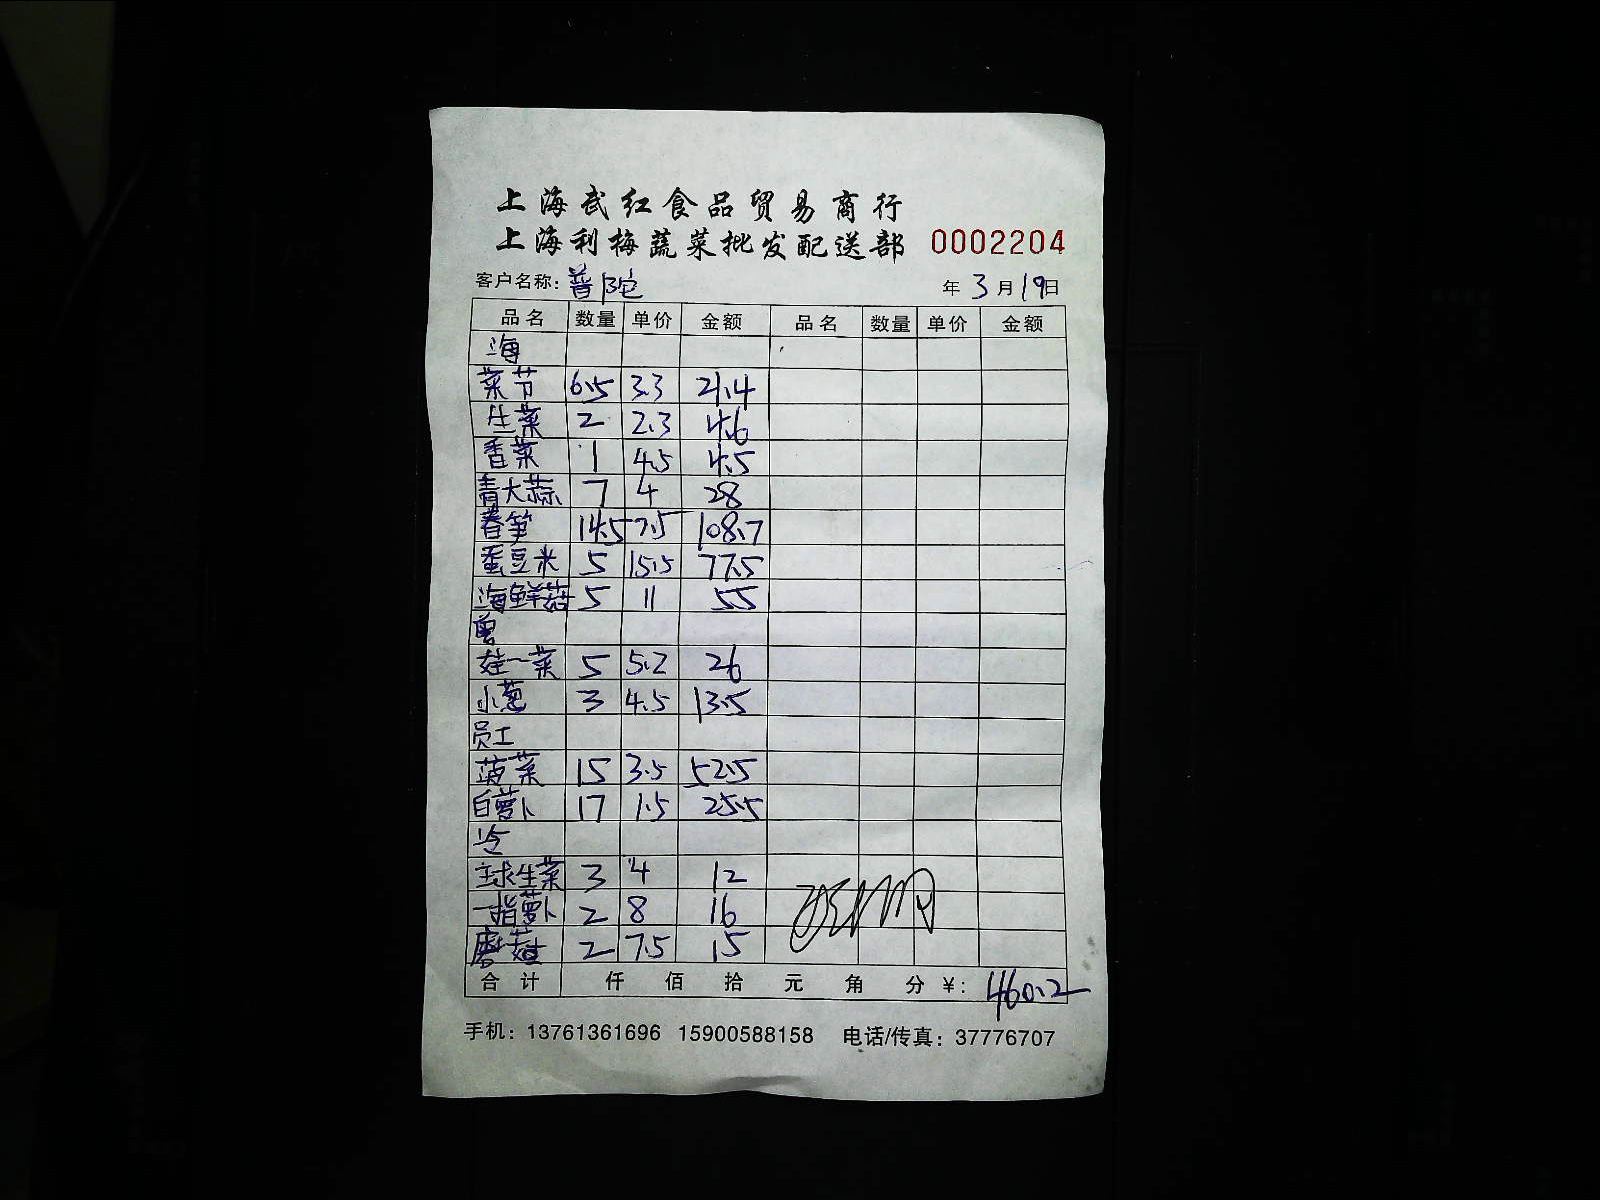 上海武红食品贸易商行
上海利梅蔬菜批发配送部 0002204
客户名称: 普陀 年 3 月 19 日
品名 数量 单价 金额 品名 数量 单价 金额
海
菜节 6.5 3.3 21.4
生菜 2 2.3 4.6
香菜 1 4.5 4.5
青大蒜 7 4 28
春笋 14.5 7.5 108.7
蚕豆米 5 15.5 77.5
海鲜菇 5 11 55
娃一菜 5 5.2 26
小葱 3 4.5 13.5
员工
菠菜 15 3.5 52.5
白萝卜 17 1.5 25.5
冷
球生菜 3 4 12
一指萝卜 2 8 16
蘑菇 2 7.5 15
合计 仟 佰 拾 元 角 分 ¥: 460.2
手机: 13761361696 15900588158 电话/传真: 37776707